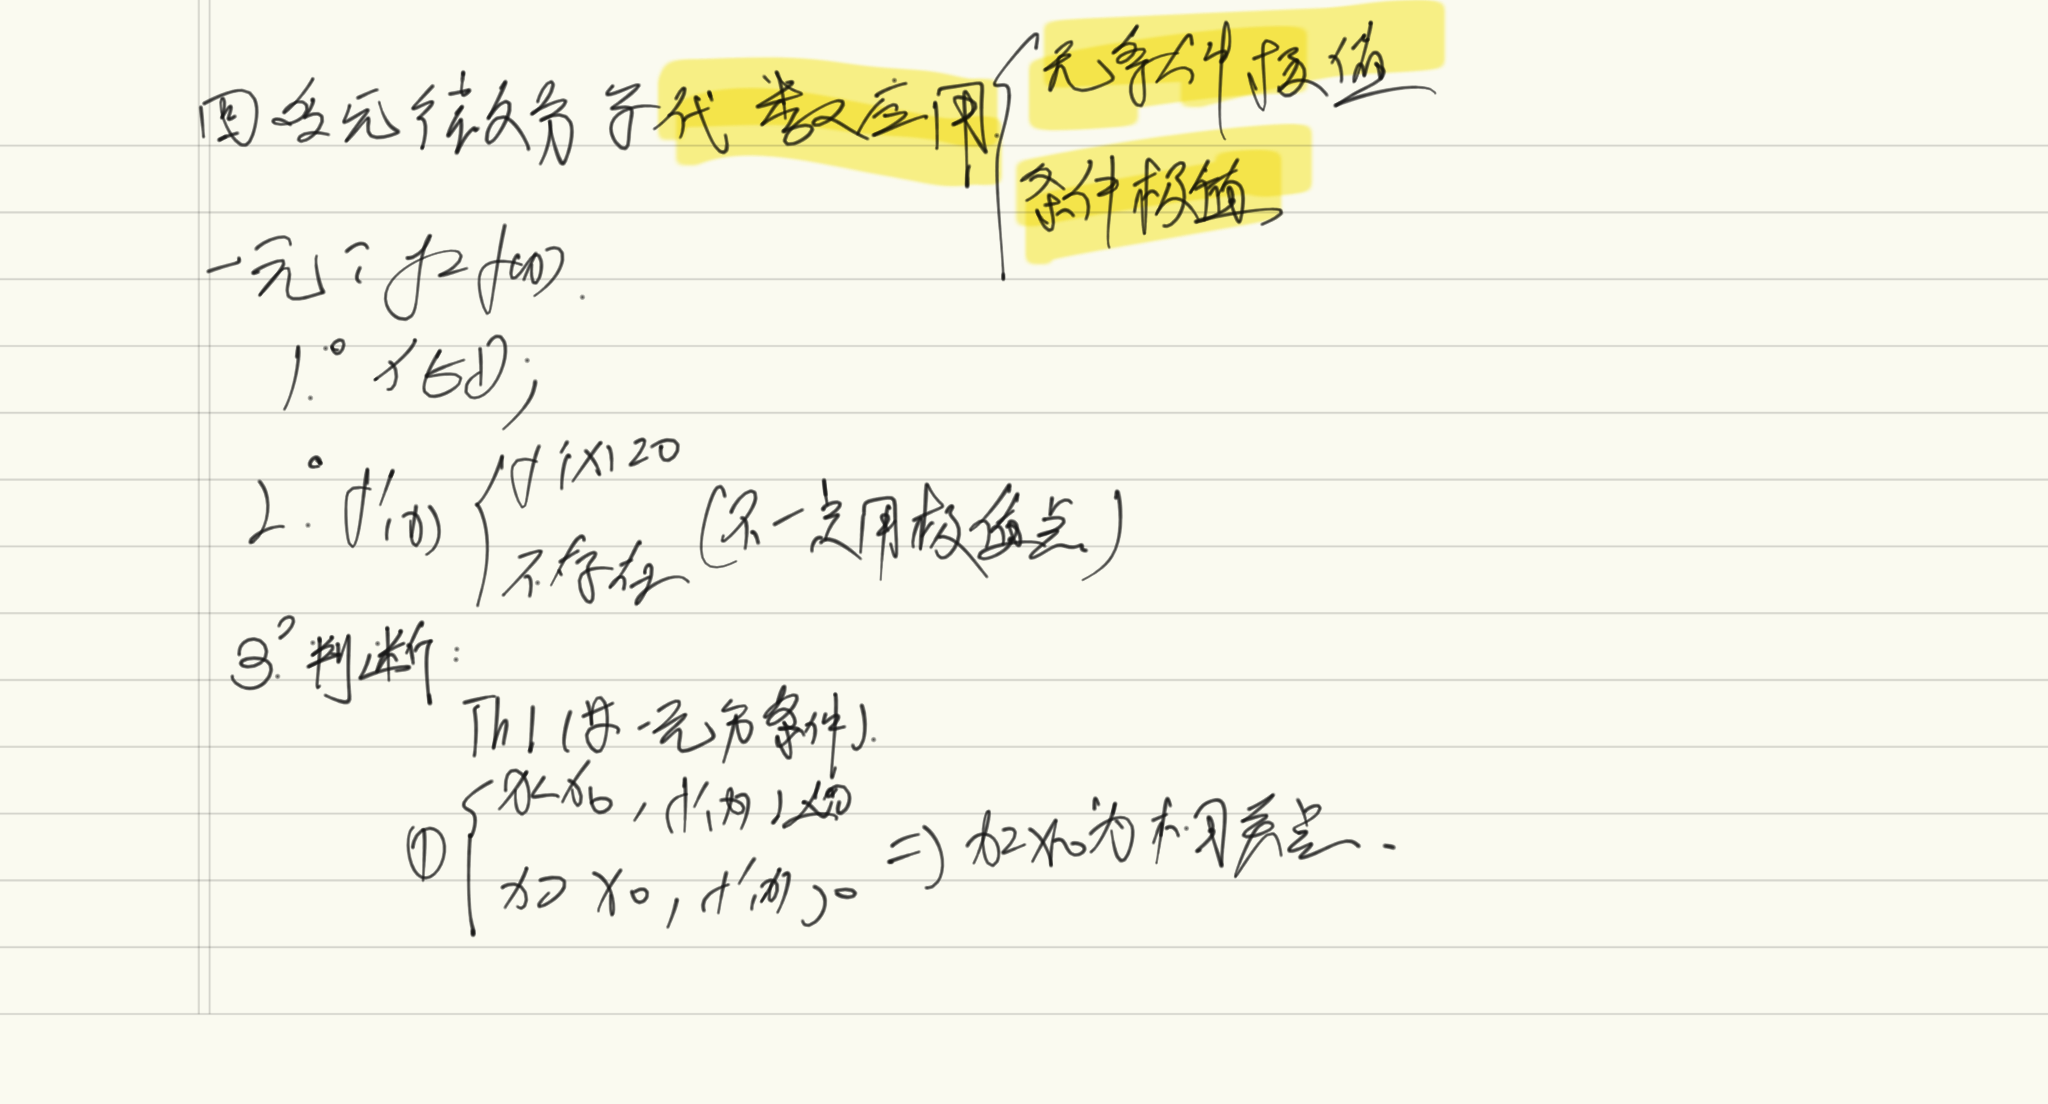 四 多元微分学代数应用 { 无条件极值
条件极值
一元: y=f(x).
1.° x∈D;
2.° f'(x) { f'(x)=0
不存在 (不一定用极值点)
3.° 判断:
Th1 (
一元
条件).
① { x<x0, f'(x)<0
x>x0, f'(x)>0 ⇒ x=x0为
点.